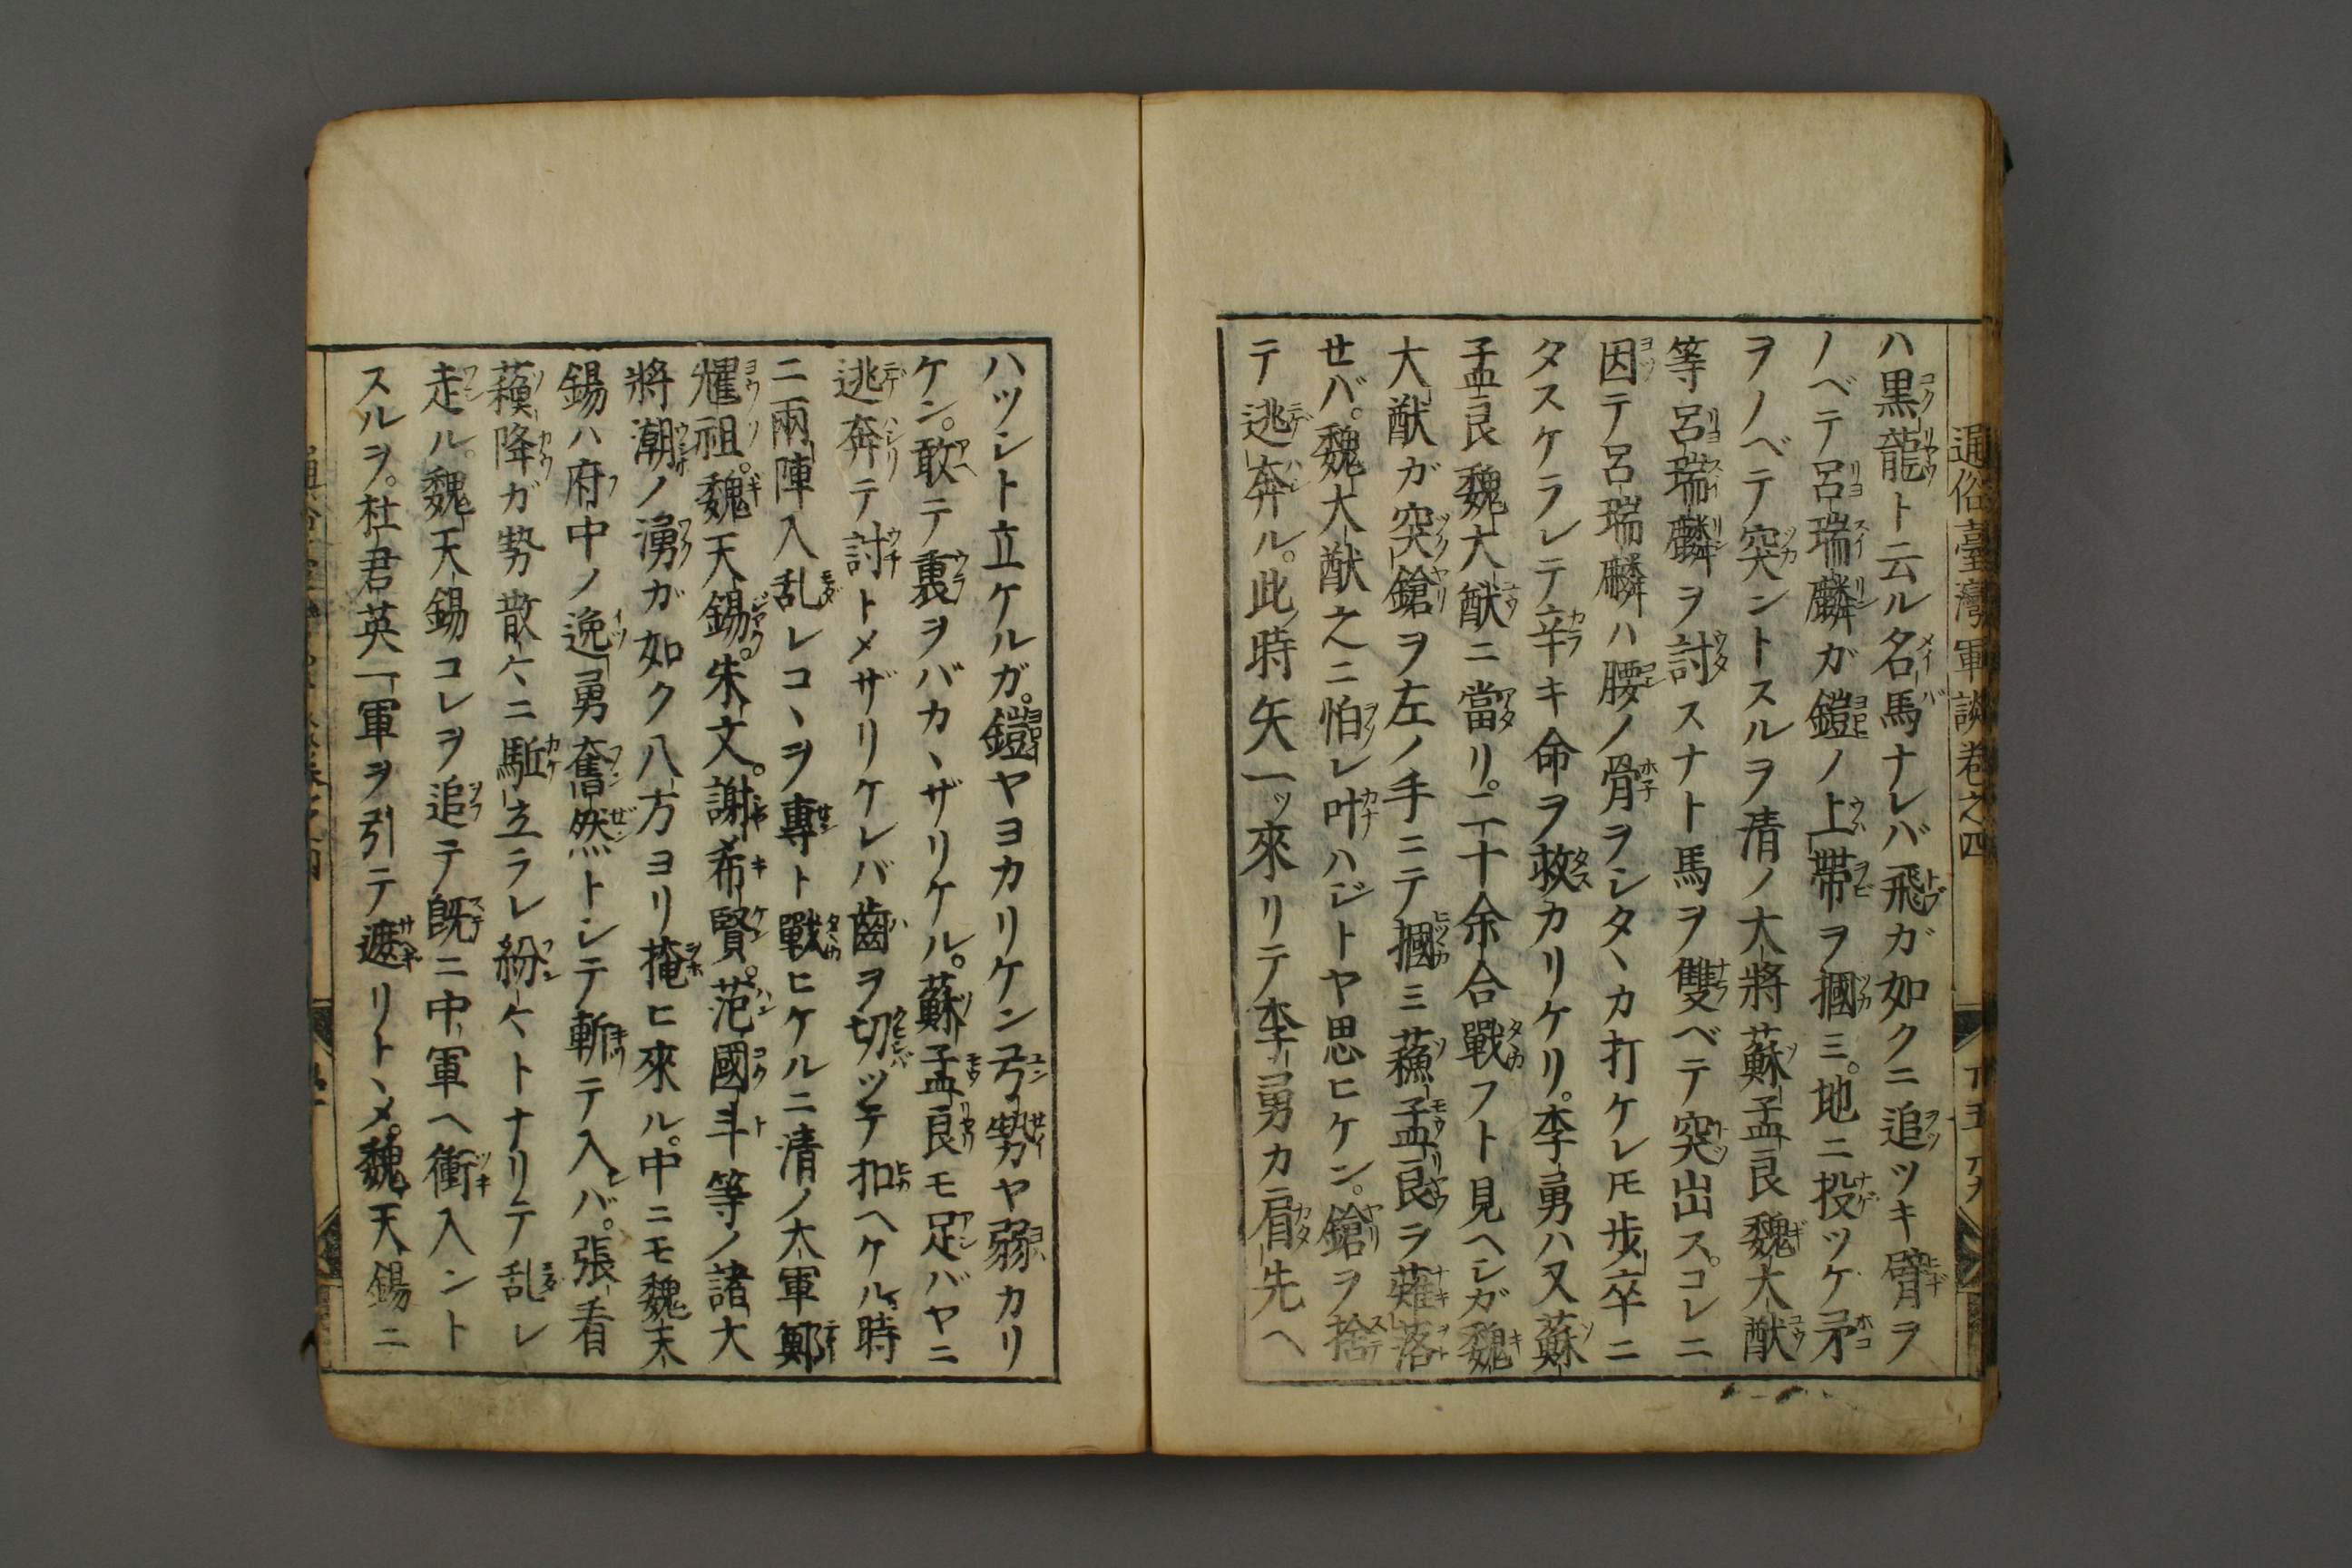 通俗臺灣軍談卷之四
ハ黒龍ト云ル名馬ナレバ飛ガ如クニ追ツキ臂ヲ
ノベテ呂瑞麟ガ鎧ノ上帶ヲ摑ミ。地ニ投ツケ矛
ヲノベテ突ントスルヲ清ノ大將蘇孟良魏大猷
等呂瑞麟ヲ討スナト馬ヲ雙ベテ突出ス。コレニ
因テ呂瑞麟ハ腰ノ骨ヲシタヽカ打ケレ𪜈歩卒ニ
タスケラレテ辛キ命ヲ救カリケリ。李勇ハ又蘇
孟良魏大猷ニ當リ。二十余合戰フト見ヘシガ魏
大猷ガ突鎗ヲ左ノ手ニテ摑ミ蘓孟良ヲ薙落
せバ。魏大猷之ニ怕レ叶ハジトヤ思ヒケン。鎗ヲ捨
テ逃奔ル。此時矢一ッ來リテ李勇カ肩先ヘ
ハツシト立ケルガ。鎧ヤヨカリケン弓勢ヤ弱カリ
ケン。敢テ裏ヲバカヽザリケル。蘇孟良モ足バヤニ
逃奔テ討トメザリケレバ齒ヲ切ッテ扣ヘケル。時
ニ兩陣入乱レコヽヲ專ト戰ヒケルニ清ノ大軍鄭
燿祖。魏天錫。朱文。謝希賢。范國斗等ノ諸大
將潮ノ湧ガ如ク八方ヨリ掩ヒ來ル。中ニモ魏天
錫ハ府中ノ逸勇奮然トシテ斬テ入バ。張看
蘓降ガ勢散々ニ駈立ラレ紛々トナリテ乱レ
走ル。魏天錫コレヲ追テ既ニ中軍ヘ衝入ント
スルヲ。杜君英一軍ヲ引テ遮リトヽメ。魏天錫ニ